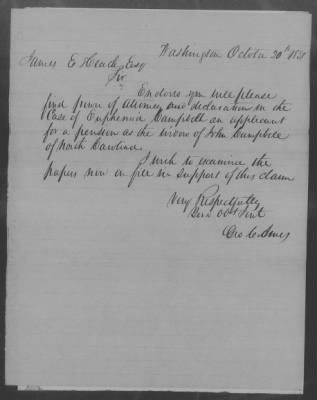 Washington October 20th 1851
James E Heath Esq
Sir
Enclosed you will please
find power of Attorney and declaration in the
Case of Euphemia Campbell an applicant
for a pension as the widow of John Campbell
of North Carolina.
I wish to examine the
papers now on file in support of this claim
Very Respectfully
Your Obt Servt
Geo C Ames